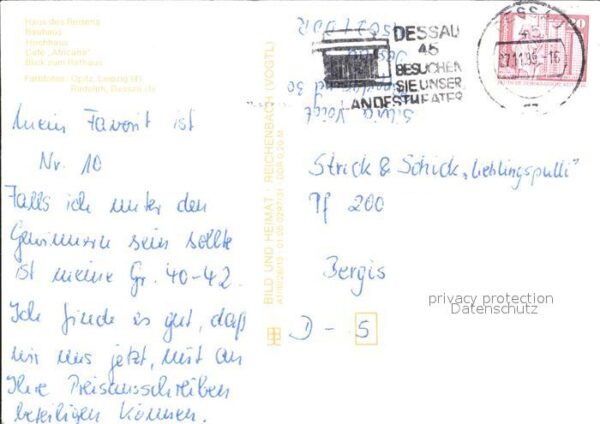 Haus des Reisens
Bauhaus
Hochhaus
Café „Africana"
Blick zum Rathaus
Farbfotos: Opitz, Leipzig (4),
Mein Favorit ist
Nr. 10
Falls ich unter den
Gewinnern sein sollte
ist meine Gr. 40-42.
Ich finde es gut, daß
wir uns jetzt, mit an
Ihre Preisausschreiben
beteiligen können.
BILD UND HEIMAT · REICHENBACH (VOGTL)
DESSAU
45
BESUCHEN
SIE UNSER
LANDESTHEATER
Silvia Voigt
Strick & Schick „Lieblingspulli"
Pf 200
Bergis
privacy protection
Datenschutz
D - 5